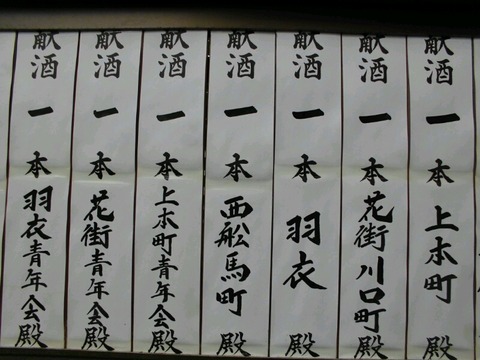 献酒一本上本町殿
献酒一本花街川口町殿
献酒一本羽衣殿
献酒一本西船馬町殿
献酒一本上本町青年会殿
献酒一本花街青年会殿
献酒一本羽衣青年会殿